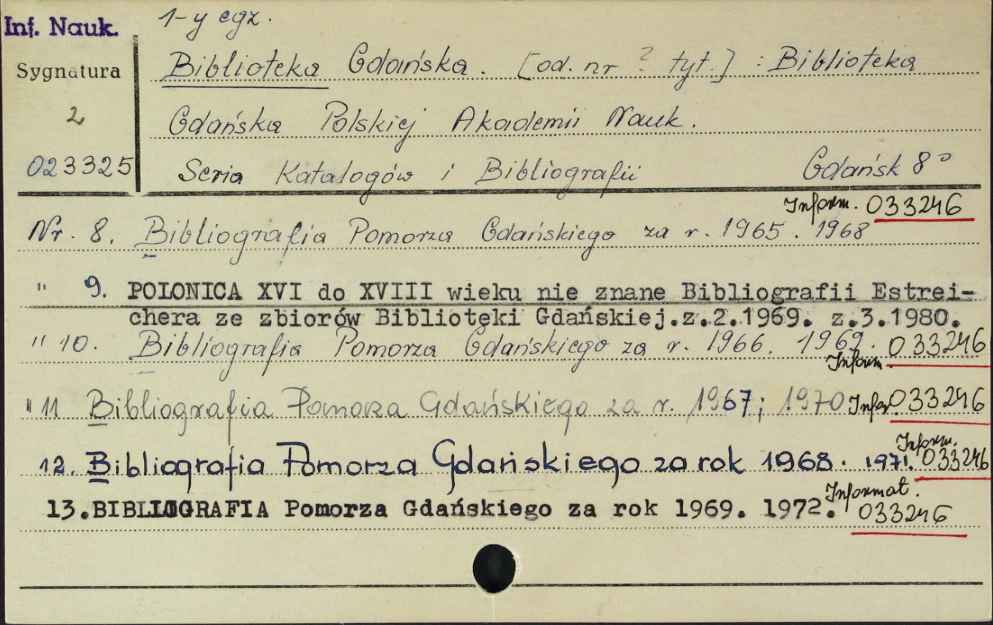 Inf. Nauk.
1-y egz.
Sygnatura
2
023325
Biblioteka Gdańska. [od. nr ? tyt.] : Biblioteka
Gdańska Polskiej Akademii Nauk.
Seria Katalogów i Bibliografii Gdańsk 8°
Inform. 033246
Nr. 8. Bibliografia Pomorza Gdańskiego za r. 1965. 1968
" 9. POLONICA XVI do XVIII wieku nie znane Bibliografii Estrei-
chera ze zbiorów Biblioteki Gdańskiej.z.2.1969. z.3.1980.
" 10. Bibliografia Pomorza Gdańskiego za r. 1966. 1969. Inform. 033246
" 11 Bibliografia Pomorza Gdańskiego za r. 1967; 1970 Infor. 033246
12. Bibliografia Pomorza Gdańskiego za rok 1968. 1971. Inform. 033246
13.BIBLIOGRAFIA Pomorza Gdańskiego za rok 1969. 1972. Informat. 033246